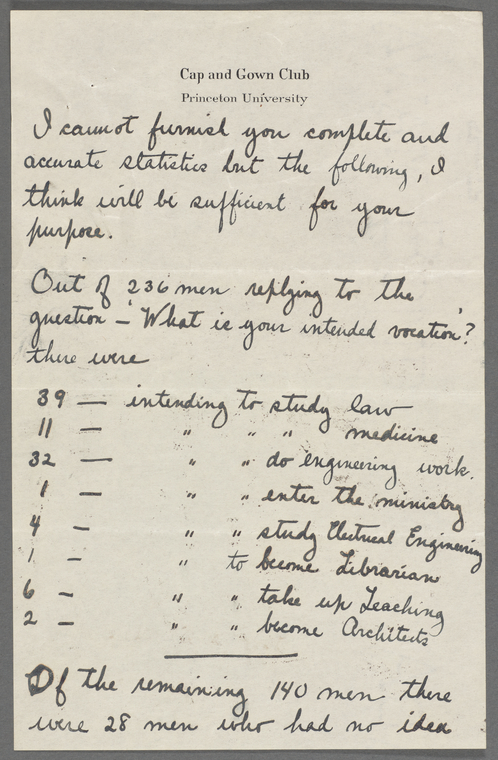 Cap and Gown Club
Princeton University
I cannot furnish you complete and
accurate statistics but the following, I
think will be sufficient for your
purpose.
Out of 236 men replying to the
question – 'What is your intended vocation'?
there were
39 — intending to study law
11 — " " " medicine
32 — " " do engineering work.
1 — " " enter the ministry
4 — " " study Electrical Engineering
1 – " to become Librarian
6 – " " take up Teaching
2 – " " become Architects
Of the remaining 140 men there
were 28 men who had no idea